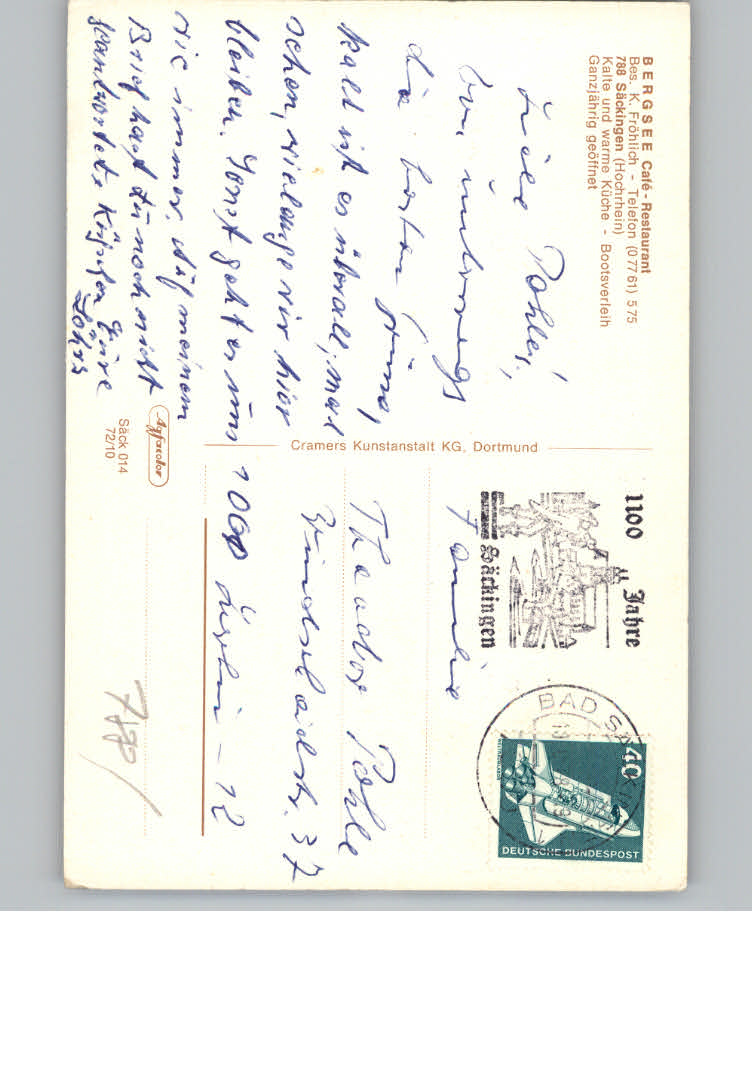 BERGSEE Café - Restaurant
Bes. K. Fröhlich - Telefon (0 77 61) 5 75
788 Säckingen (Hochrhein)
Kalte und warme Küche - Bootsverleih
Ganzjährig geöffnet
Liebe Pohles!
Von unterwegs
die besten Grüße,
kalt ist es überall, mal
sehen, wielange wir hier
bleiben. Sonst geht es uns
wie immer. Auf meinem
Brief hast Du noch nicht
geantwortet. Eure
Löhrs
Cramers Kunstanstalt KG, Dortmund
Agfacolor
Säck 014
72/10
1100 Jahre
Säckingen
BAD SÄCKINGEN
40
DEUTSCHE BUNDESPOST
Familie
Theodor Pohle
37
1000 Berlin - 12